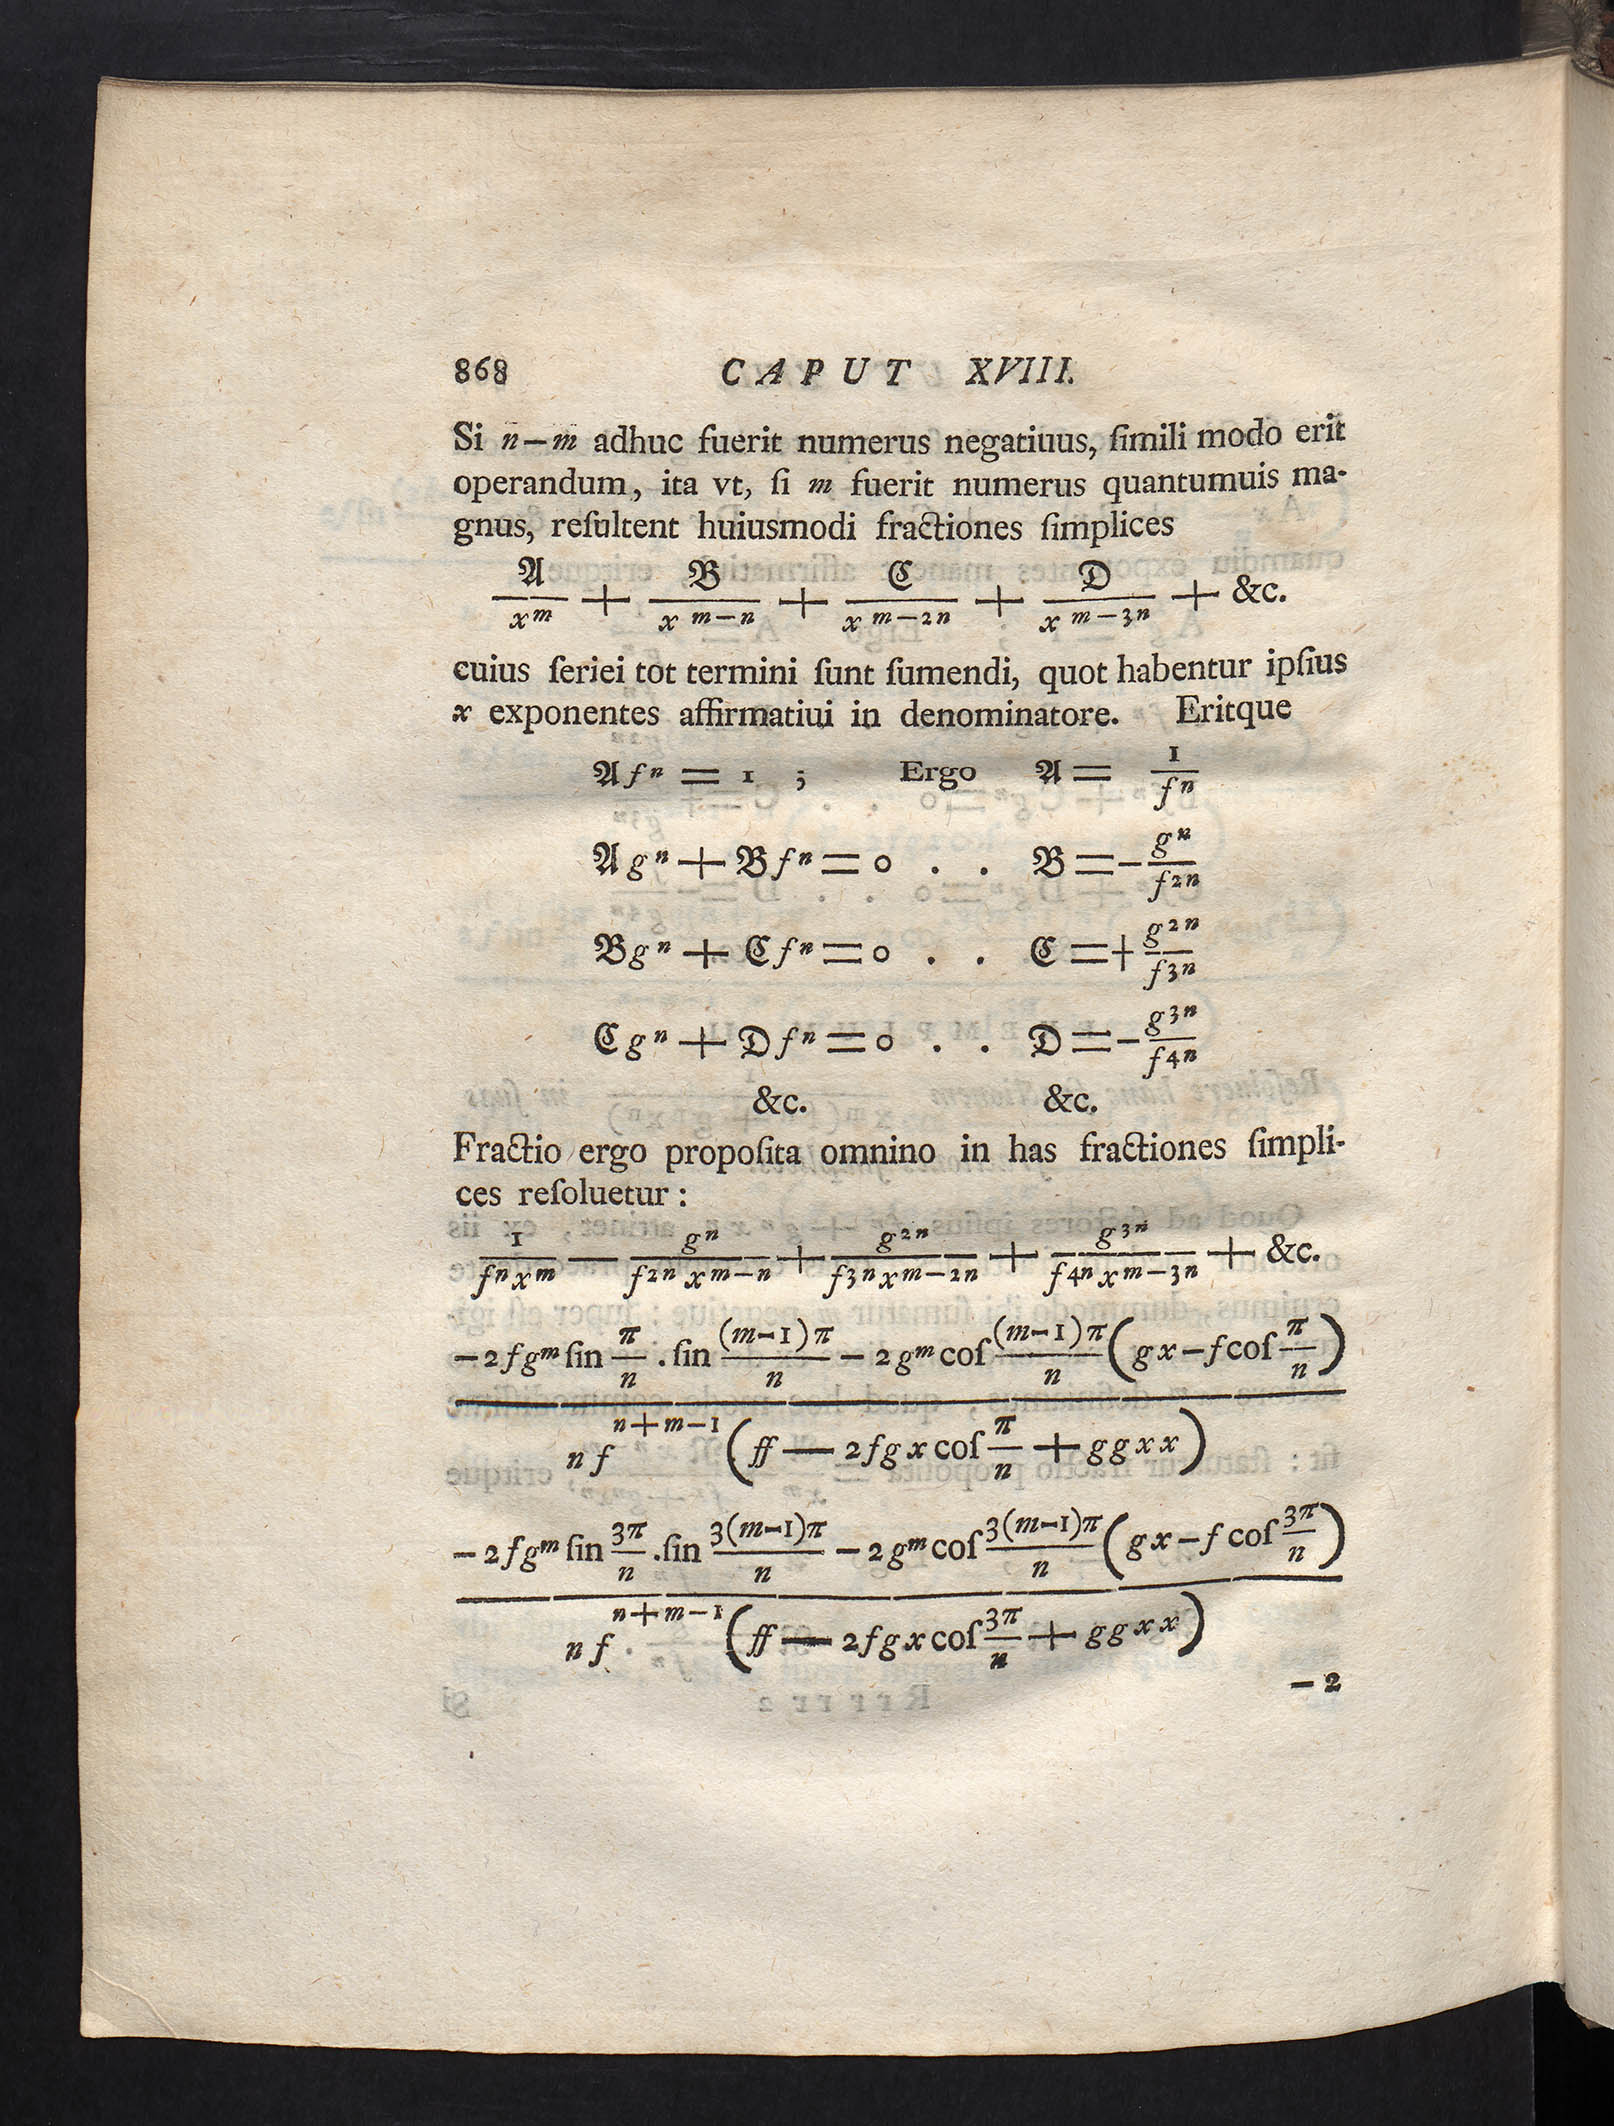 868 CAPUT XVIII.
Si n−m adhuc fuerit numerus negatiuus, ſimili modo erit
operandum, ita vt, ſi m fuerit numerus quantumuis ma-
gnus, reſultent huiusmodi fractiones ſimplices
𝔄/x^m + 𝔅/x^{m−n} + ℭ/x^{m−2n} + 𝔇/x^{m−3n} + &c.
cuius ſeriei tot termini ſunt ſumendi, quot habentur ipſius
x exponentes affirmatiui in denominatore. Eritque
𝔄f^n = 1 ; Ergo 𝔄 = 1/f^n
𝔄g^n + 𝔅f^n = 0 . . 𝔅 = − g^n/f^{2n}
𝔅g^n + ℭf^n = 0 . . ℭ = + g^{2n}/f^{3n}
ℭg^n + 𝔇f^n = 0 . . 𝔇 = − g^{3n}/f^{4n}
&c. &c.
Fractio ergo propoſita omnino in has fractiones ſimpli-
ces reſoluetur :
1/(f^n x^m) − g^n/(f^{2n} x^{m−n}) + g^{2n}/(f^{3n} x^{m−2n}) + g^{3n}/(f^{4n} x^{m−3n}) + &c.
−2fg^m ſin π/n . ſin (m−1)π/n − 2g^m coſ (m−1)π/n (gx−f coſ π/n)
nf^{n+m−1} (ff − 2fgx coſ π/n + ggxx)
−2fg^m ſin 3π/n . ſin 3(m−1)π/n − 2g^m coſ 3(m−1)π/n (gx−f coſ 3π/n)
nf^{n+m−1} (ff − 2fgx coſ 3π/n + ggxx)
− 2